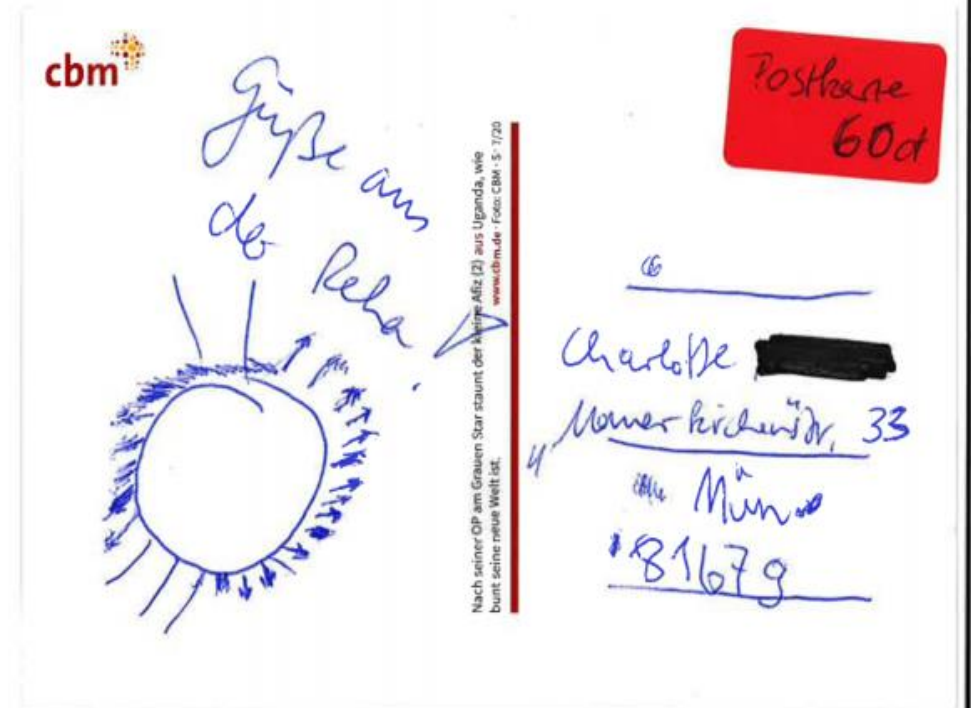 cbm
Grüße aus
der Reha!
Nach seiner OP am Grauen Star staunt der kleine Afiz (2) aus Uganda, wie
bunt seine neue Welt ist.
www.cbm.de · Foto: CBM · S · 7/20
Postkarte
60ct
Charlotte
33
81679